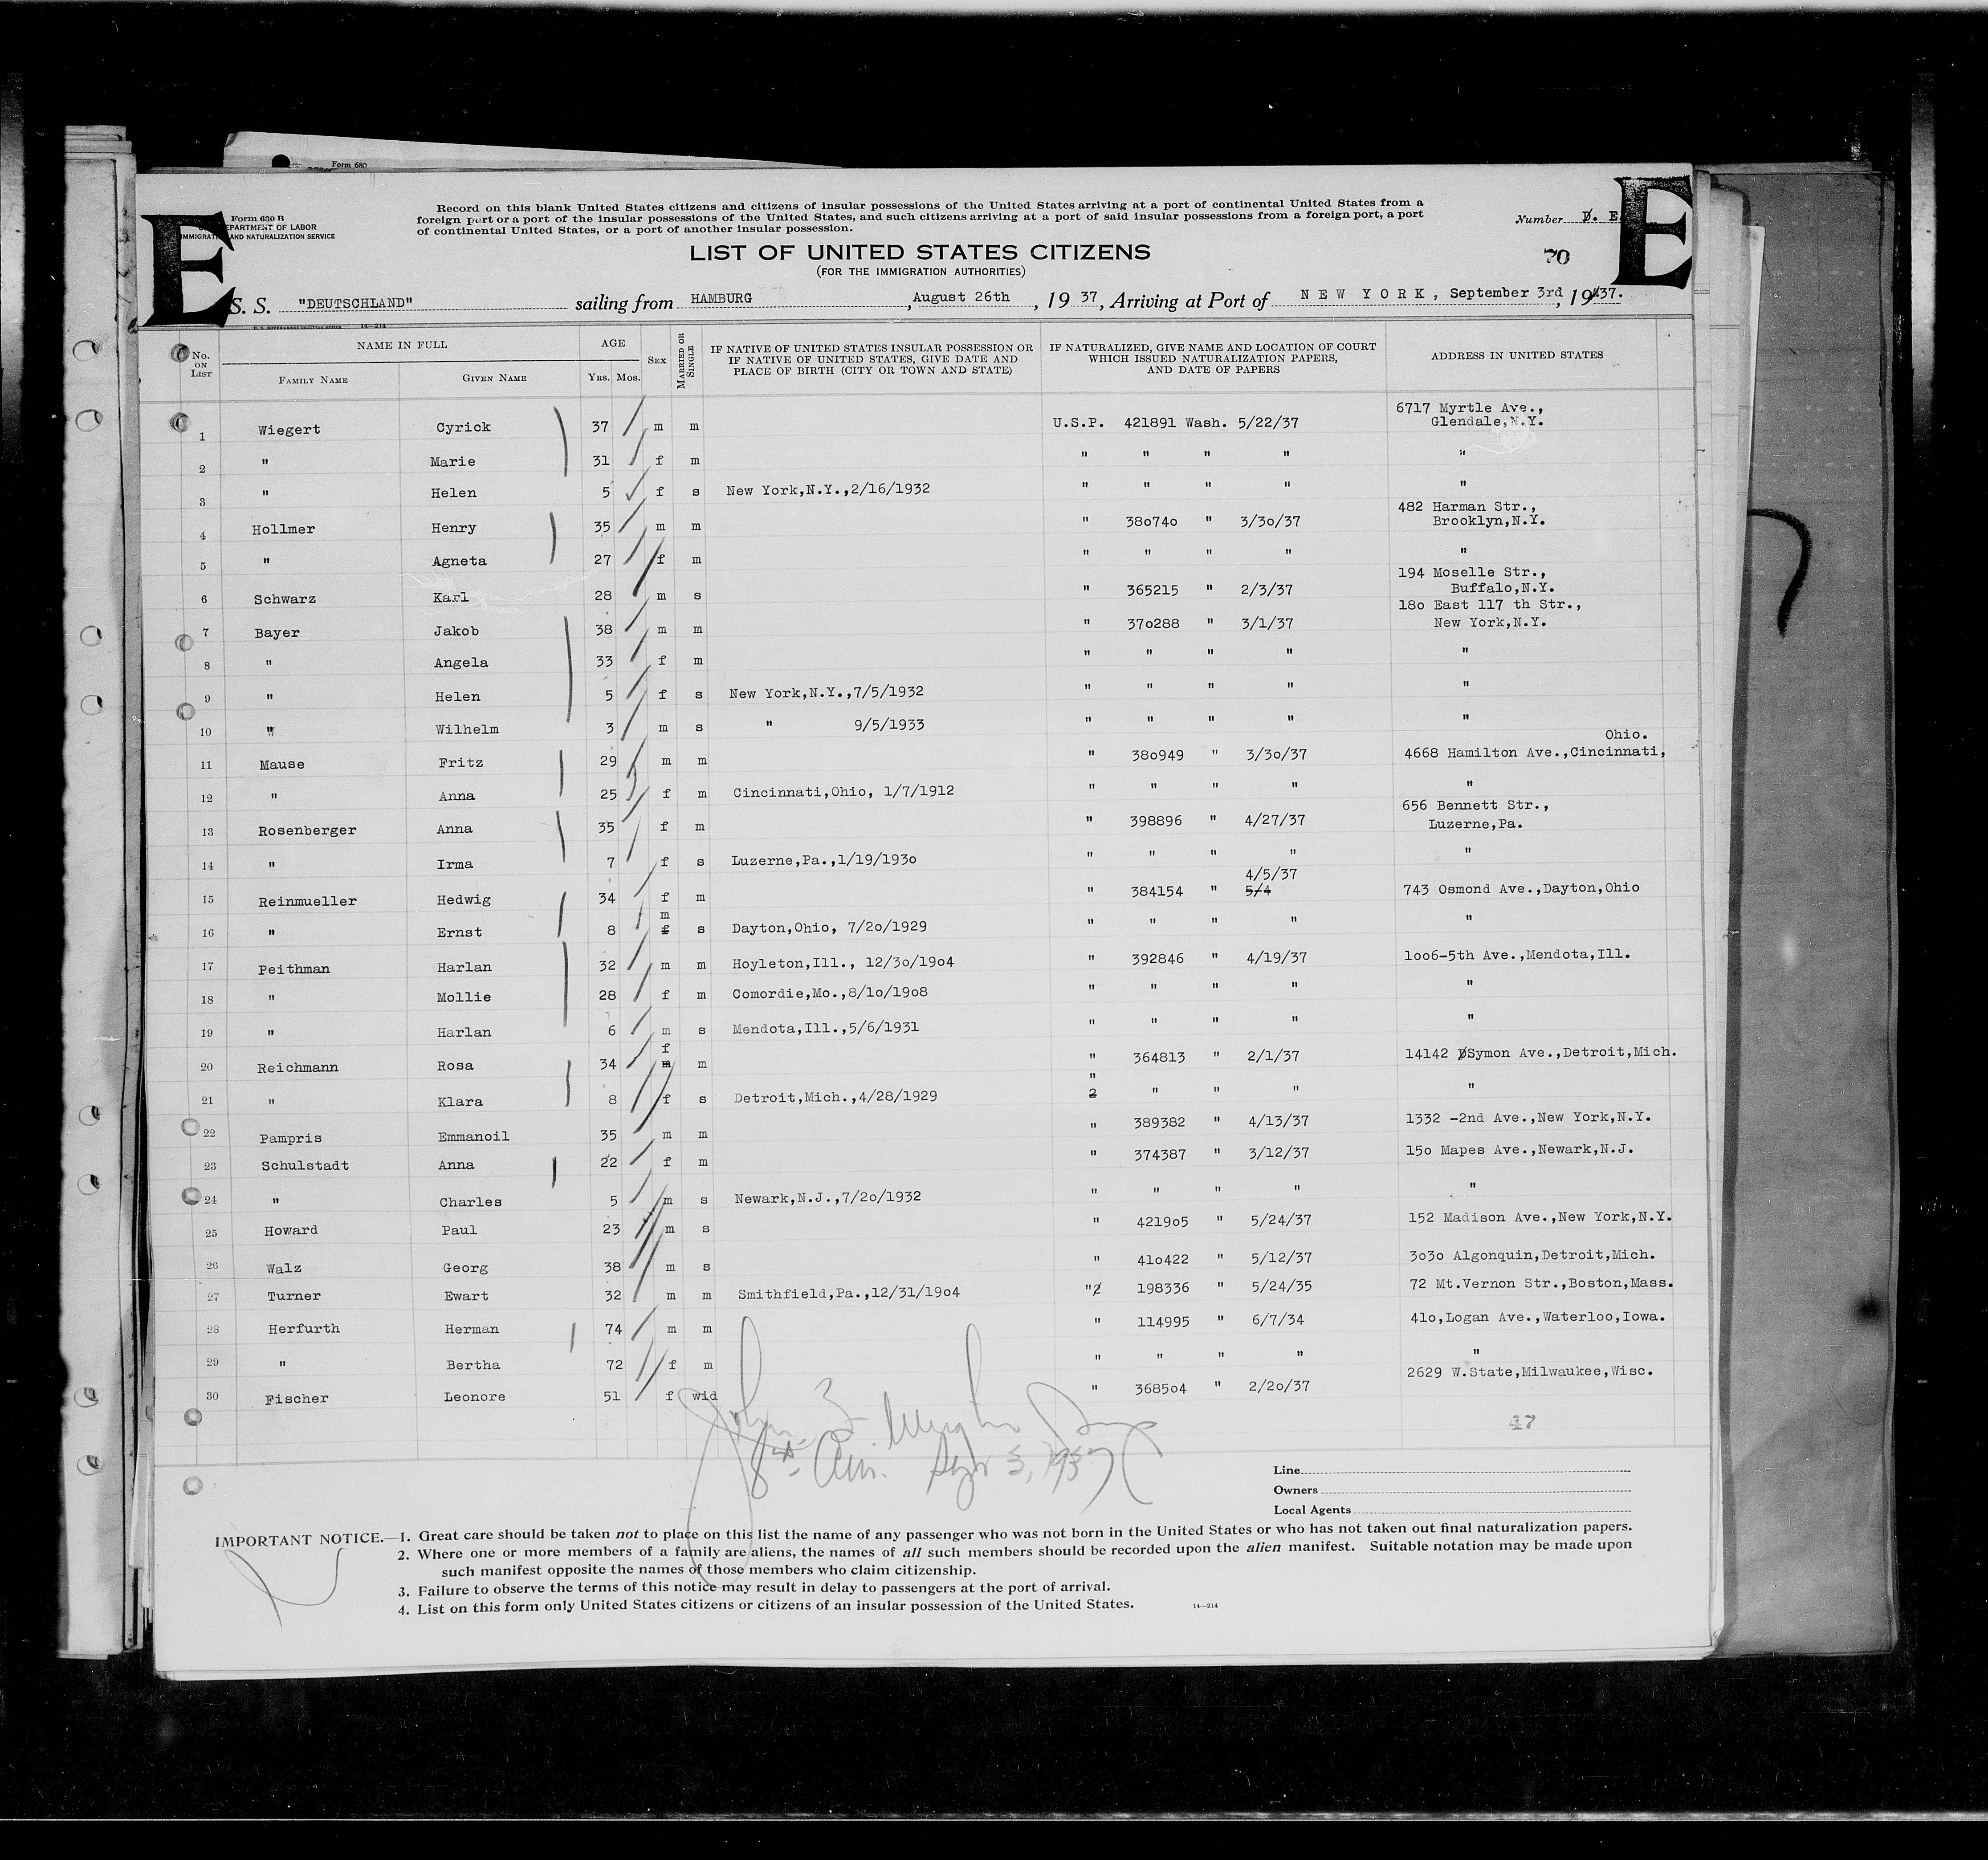 Form 680
E
E
Form 630 B
DEPARTMENT OF LABOR
IMMIGRATION AND NATURALIZATION SERVICE
Record on this blank United States citizens and citizens of insular possessions of the United States arriving at a port of continental United States from a
foreign port or a port of the insular possessions of the United States, and such citizens arriving at a port of said insular possessions from a foreign port, a port
of continental United States, or a port of another insular possession.
Number D. E.
LIST OF UNITED STATES CITIZENS
(FOR THE IMMIGRATION AUTHORITIES)
70
S. S. "DEUTSCHLAND" sailing from HAMBURG , August 26th , 19 37, Arriving at Port of N E W Y O R K , September 3rd , 1937.
14-214
No. ON LIST NAME IN FULL AGE SEX MARRIED OR SINGLE IF NATIVE OF UNITED STATES INSULAR POSSESSION OR IF NATIVE OF UNITED STATES, GIVE DATE AND PLACE OF BIRTH (CITY OR TOWN AND STATE) IF NATURALIZED, GIVE NAME AND LOCATION OF COURT WHICH ISSUED NATURALIZATION PAPERS, AND DATE OF PAPERS ADDRESS IN UNITED STATES
FAMILY NAME GIVEN NAME YRS. MOS.
6717 Myrtle Ave.,
1 Wiegert Cyrick 37 m m U.S.P. 421891 Wash. 5/22/37 Glendale,N.Y.
2 " Marie 31 f m " " " " "
3 " Helen 5 f s New York,N.Y.,2/16/1932 " " " " "
482 Harman Str.,
4 Hollmer Henry 35 m m " 380740 " 3/30/37 Brooklyn,N.Y.
5 " Agneta 27 f m " " " " "
194 Moselle Str.,
6 Schwarz Karl 28 m s " 365215 " 2/3/37 Buffalo,N.Y.
180 East 117 th Str.,
7 Bayer Jakob 38 m m " 370288 " 3/1/37 New York,N.Y.
8 " Angela 33 f m " " " " "
9 " Helen 5 f s New York,N.Y.,7/5/1932 " " " " "
10 " Wilhelm 3 m s " 9/5/1933 " " " " "
Ohio.
11 Mause Fritz 29 m m " 380949 " 3/30/37 4668 Hamilton Ave.,Cincinnati,
12 " Anna 25 f m Cincinnati,Ohio, 1/7/1912 " " " " "
656 Bennett Str.,
13 Rosenberger Anna 35 f m " 398896 " 4/27/37 Luzerne,Pa.
14 " Irma 7 f s Luzerne,Pa.,1/19/1930 " " " " "
4/5/37
15 Reinmueller Hedwig 34 f m " 384154 " 5/4 743 Osmond Ave.,Dayton,Ohio
m
16 " Ernst 8 f s Dayton,Ohio, 7/20/1929 " " " " "
17 Peithman Harlan 32 m m Hoyleton,Ill., 12/30/1904 " 392846 " 4/19/37 1006-5th Ave.,Mendota,Ill.
18 " Mollie 28 f m Comordie,Mo.,8/10/1908 " " " " "
19 " Harlan 6 m s Mendota,Ill.,5/6/1931 " " " " "
f
20 Reichmann Rosa 34 m m " 364813 " 2/1/37 14142 DSymon Ave.,Detroit,Mich.
"
21 " Klara 8 f s Detroit,Mich.,4/28/1929 2 " " " "
22 Pampris Emmanoil 35 m m " 389382 " 4/13/37 1332 -2nd Ave.,New York,N.Y.
23 Schulstadt Anna 22 f m " 374387 " 3/12/37 150 Mapes Ave.,Newark,N.J.
24 " Charles 5 m s Newark,N.J.,7/20/1932 " " " " "
25 Howard Paul 23 m s " 421905 " 5/24/37 152 Madison Ave.,New York,N.Y.
26 Walz Georg 38 m s " 410422 " 5/12/37 3030 Algonquin,Detroit,Mich.
27 Turner Ewart 32 m m Smithfield,Pa.,12/31/1904 "2 198336 " 5/24/35 72 Mt.Vernon Str.,Boston,Mass.
28 Herfurth Herman 74 m m " 114995 " 6/7/34 410,Logan Ave.,Waterloo,Iowa.
29 " Bertha 72 f m " " " " "
30 Fischer Leonore 51 f wid " 368504 " 2/20/37 2629 W.State,Milwaukee,Wisc.
47
Sept 3, 1937
Line
Owners
Local Agents
IMPORTANT NOTICE.—1. Great care should be taken not to place on this list the name of any passenger who was not born in the United States or who has not taken out final naturalization papers.
2. Where one or more members of a family are aliens, the names of all such members should be recorded upon the alien manifest. Suitable notation may be made upon
such manifest opposite the names of those members who claim citizenship.
3. Failure to observe the terms of this notice may result in delay to passengers at the port of arrival.
4. List on this form only United States citizens or citizens of an insular possession of the United States. 14-214